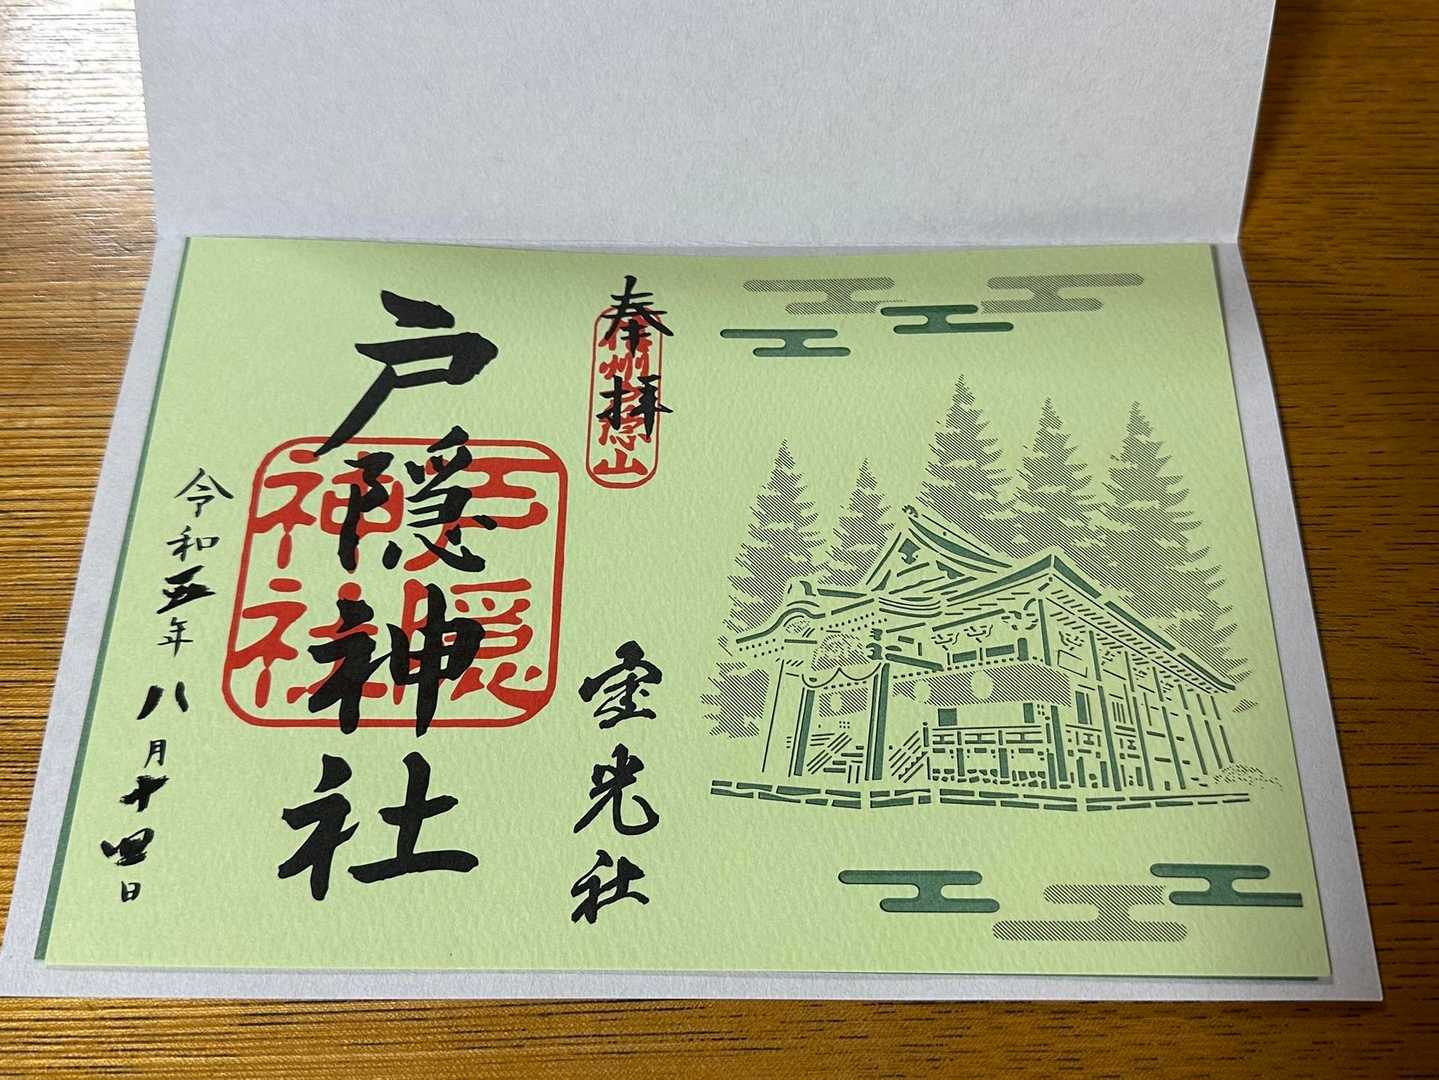 奉拝
信州戸隠山
宝光社
戸隠神社
戸隠
神社
令和五年八月十四日